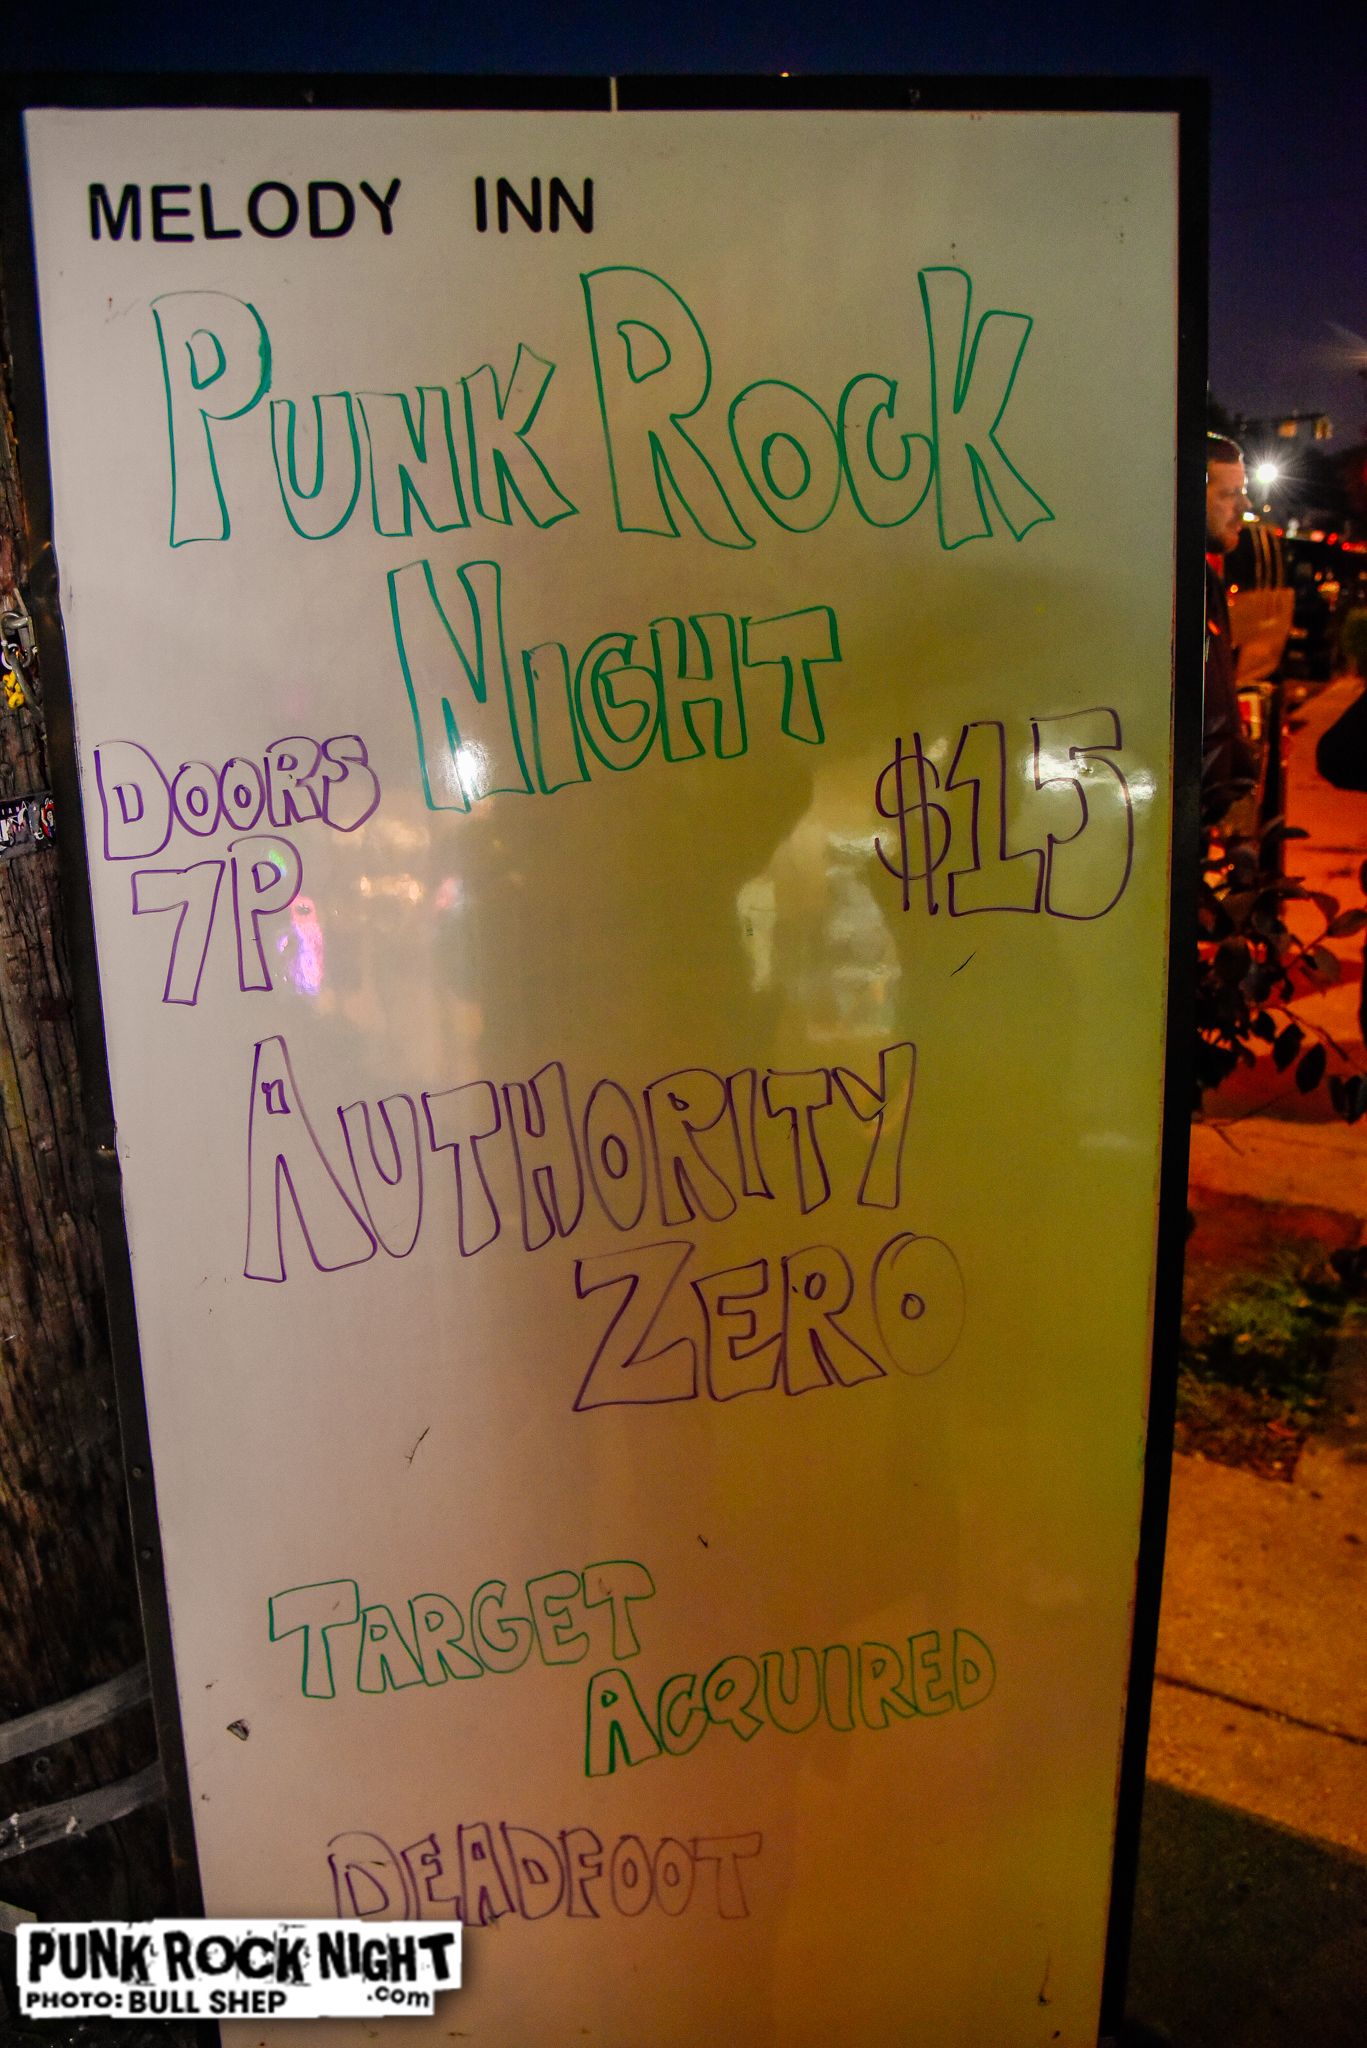 MELODY INN
PUNK ROCK
NIGHT
DOORS
7P
$15
AUTHORITY
ZERO
TARGET
ACQUIRED
DEADFOOT
PUNK ROCK NIGHT
.com
PHOTO: BULL SHEP